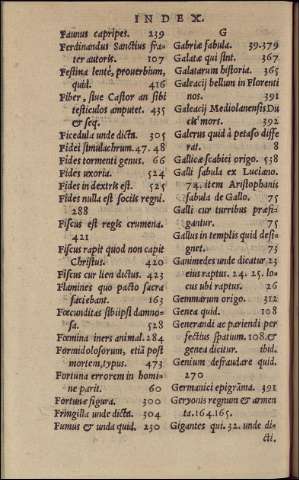 INDEX.
Faunus capripes. 239
Ferdinandus Sanctius fra-
ter autoris. 107
Festina lentè, prouerbium,
quid. 416
Fiber, siue Castor an sibi
testiculos amputet. 435
& seq.
Ficedula unde dicta. 305
Fidei simulachrum. 47. 48
Fides tormenti genus. 66
Fides uxoria. 524
Fides in dextris est. 525
Fides nulla est sociis regni.
288
Fiscus est regis crumena.
421
Fiscus rapit quod non capit
Christus. 420
Fiscus cur lien dictus. 423
Flamines quo pacto sacra
faciebant. 163
Fœcunditas sibiipsi damno-
sa. 528
Fœmina iners animal. 284
Formidolosorum, etiā post
mortem, typus. 473
Fortuna errorem in homi-
ne parit. 60
Fortunæ figura. 300
Fringilla unde dicta. 304
Fumus & unda quid. 230
G
Gabriæ fabula. 39.379
Galatæ qui sint. 367
Galatarum historia. 365
Galeacij bellum in Florenti
nos. 391
Galeacij Mediolanensis Du
cis mors. 392
Galerus quid à petaso diffe
rat. 8
Gallicæ scabiei origo. 538
Galli fabula ex Luciano.
74. item Aristophanis
fabula de Gallo. 75
Galli cur turribus præfi-
gantur. 75
Gallus in templis quid desi-
gnet. 75
Ganimedes unde dicatur 23
eius raptus. 24. 25. lo-
cus ubi raptus. 26
Gemmarum origo. 312
Genea quid. 108
Generandi ac pariendi per
fectius spatium. 108. &
genea dicitur. ibid.
Genium defraudare quid.
270
Germanici epigrāma. 391
Geryonis regnum & armen
ta. 164.165.
Gigantes qui. 32. unde di-
cti.